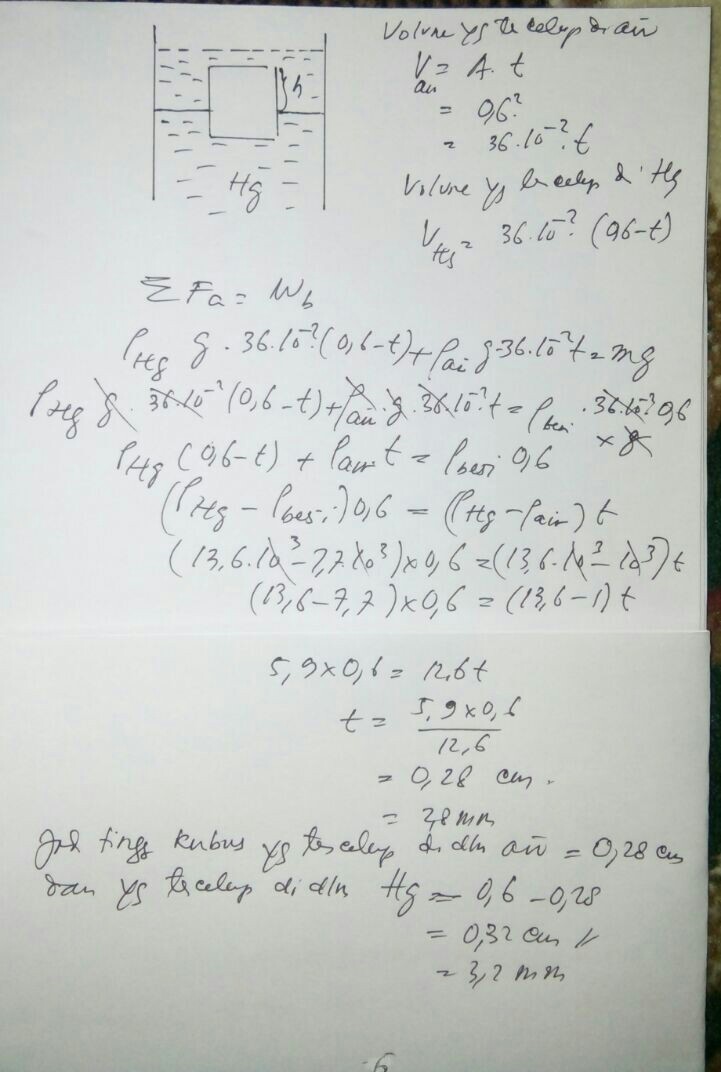 Volume yg tercelup di air
V air = A. t
= 0,6².
= 36.10⁻². t
Volume yg tercelup di Hg
V Hg = 36.10⁻² (0,6-t)
h
Hg
ΣFa = Wb
ρHg g . 36.10⁻² (0,6-t) + ρair g.36.10⁻² t = mg
ρHg g . 36.10⁻² (0,6-t) + ρair . g . 36.10⁻² . t = ρbesi . 36.10⁻² 0,6
x g
ρHg (0,6-t) + ρair t = ρbesi 0,6
(ρHg - ρbesi) 0,6 = (ρHg - ρair) t
(13,6.10³ - 7,7 10³) x 0,6 = (13,6.10³ - 10³) t
(13,6 - 7,7) x 0,6 = (13,6 - 1) t
5,9 x 0,6 = 12,6 t
t = 5,9 x 0,6
12,6
= 0,28 cm.
= 2,8 mm
Jadi tingg kubus yg tercelup di dlm air = 0,28 cm
dan yg tercelup di dlm Hg = 0,6 - 0,28
= 0,32 cm
= 3,2 mm
6